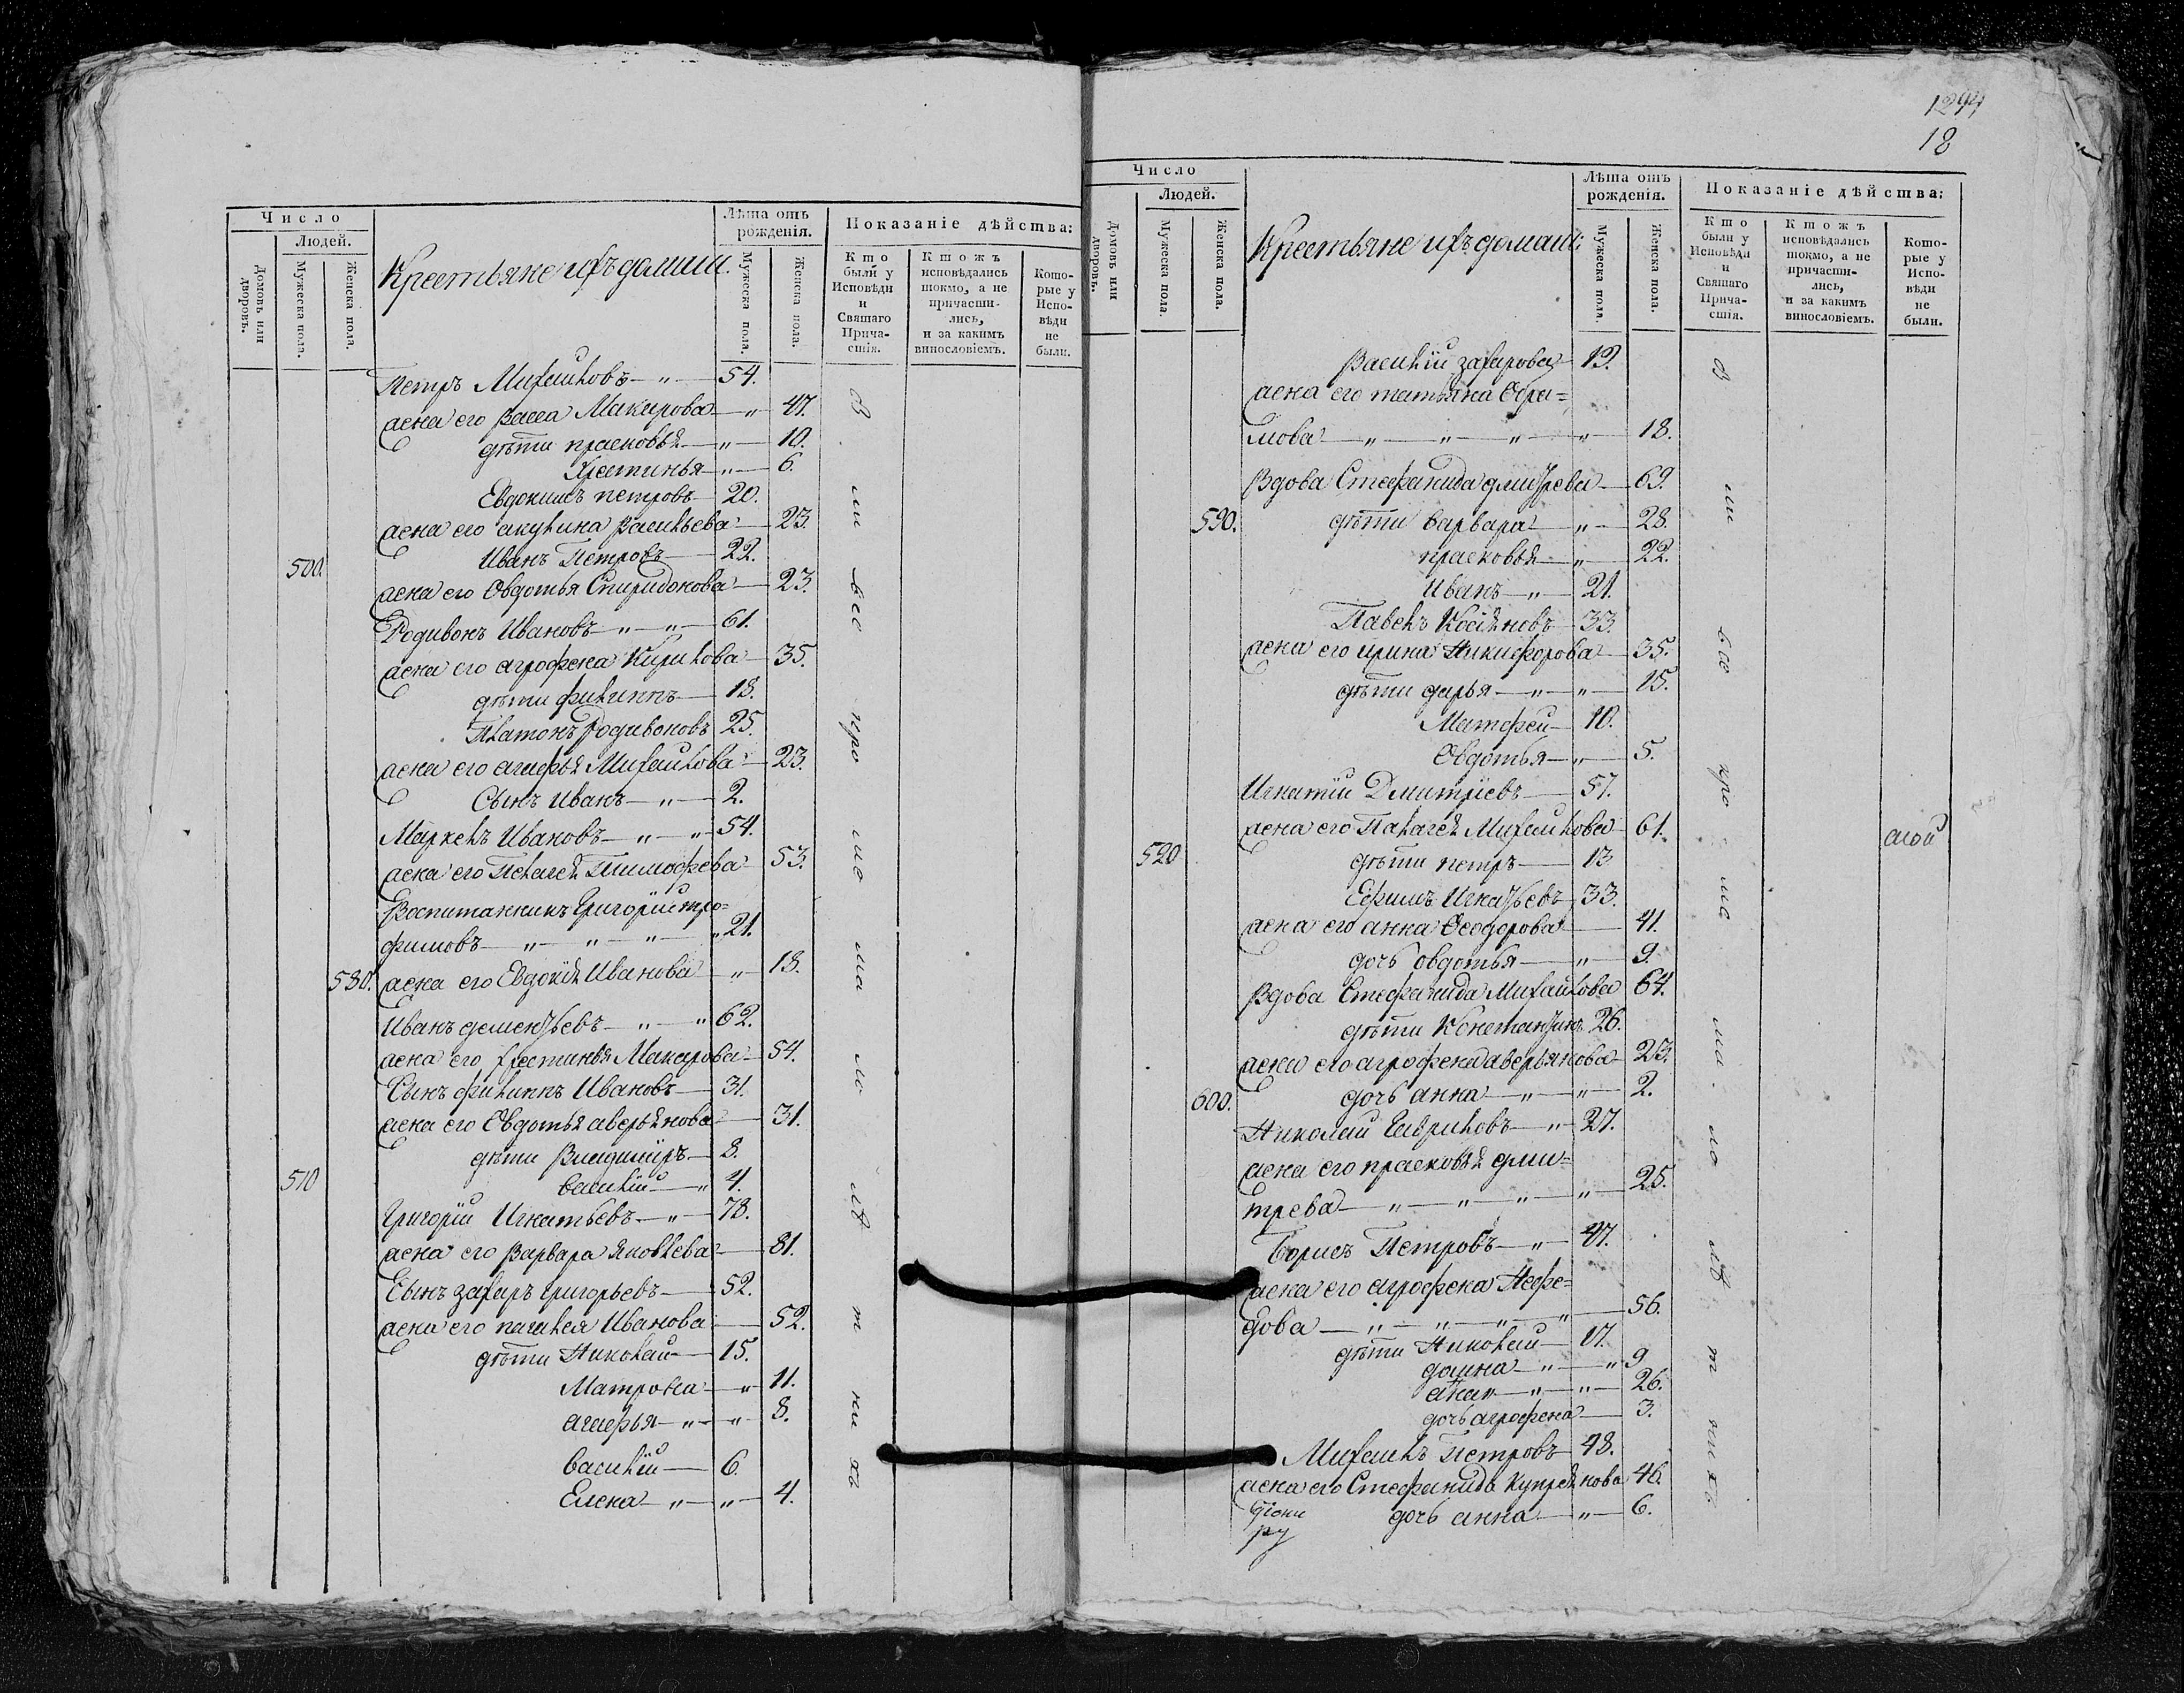 Число
Людей.
Домовъ или дворовъ.
Мужеска пола.
Женска пола.
Крестьяне ихъ домаш:
Лѣта отъ рожденія.
Мужеска пола.
Женска пола.
Показаніе дѣйства:
Кто были у Исповѣди и Святаго Причастія.
Ктожъ исповѣдались токмо, а не причастились, и за какимъ винословіемъ.
Которые у Исповѣди не были.
Петръ Михайловъ — " — 54.
жена его Васса Макарова — " — 47.
дѣти прасковья — " — 10.
Хрестинья — " — 6.
Евдокимъ петровъ — 20.
жена его акулина Васильева — 23.
Иванъ Петровъ — 22.
500.
жена его Овдотья Спиридонова — 23.
Родивонъ Ивановъ — " — " — 61.
жена его агрофена Кирилова — 35.
дѣти филиппъ — 18.
Платонъ Родивоновъ 25.
жена его агафья Михайлова — 23.
Сынъ Иванъ — " — 2.
Маркелъ Ивановъ — " — " 54.
жена его Пелагея Тимофева — 53.
Воспитанникъ Григорій тро=
фимовъ — " — " — " — " 21.
580. жена его Евдокія Иванова — " — 18.
Иванъ дементьевъ — " — " 62.
жена его хрестинья Макарова — 54.
Сынъ филиппъ Ивановъ — 31.
жена его Овдотья аверьянова — 31.
дѣти Владимиръ — 8.
510
василій — " 4.
Григорій Игнатьевъ — " — 78.
жена его Варвара яковлева — 81.
Сынъ захаръ григорьевъ — 52.
жена его пелагея Иванова — 52.
дѣти Николай — 15.
Матрона — " — 11.
агафья — " — " — 8.
василій — 6.
Елена — " — " — 4.
вси все про ме ма ло лѣ т ни хъ
1294
18
Число
Людей.
Домовъ или дворовъ.
Мужеска пола.
Женска пола.
Крестьяне ихъ домаш:
Лѣта отъ рожденія.
Мужеска пола.
Женска пола.
Показаніе дѣйства:
Кто были у Исповѣди и Святаго Причастія.
Ктожъ исповѣдались токмо, а не причастились, и за какимъ винословіемъ.
Которые у Исповѣди не были.
Василій захаровъ — 19.
жена его татьяна
мова — " — " — " — " — 18.
Вдова Стефанида дмитрева — 69.
590.
дѣти варвара — " — 28.
прасковья — " — 22.
Иванъ — " — 21.
Павелъ Косяновъ — 33.
жена его ирина Никифорова — 35.
дѣти дарья — " — " — 15.
Матфей — 10.
Овдотья — " — 5.
Игнатій Дмитріевъ — 57.
жена его Палагея Михайлова — 61.
520
дѣти петръ — 13
Ефимъ Игнатьевъ 33.
жена его анна Феодорова — 41.
дочь овдотья — " — 9.
Вдова Стефанида Михайлова 64.
дѣти Константинъ 26.
жена его агрофена аверьянова — 23.
600.
дочь анна — " — " — 2.
Николай Гавриловъ — " — 27.
жена его прасковья дми=
трева — " — " — " — " — 25.
Борисъ Петровъ — " — 47.
жена его агрофена Нефе=
дова — " — " — " — " — 56.
дѣти Николай — 17.
домна — " — " 9
— " — " — 26.
дочь агрофена — 3.
Михаилъ Петровъ — 48.
жена его Стефанида Купреянова 46.
дочь анна — " — 6.
ру